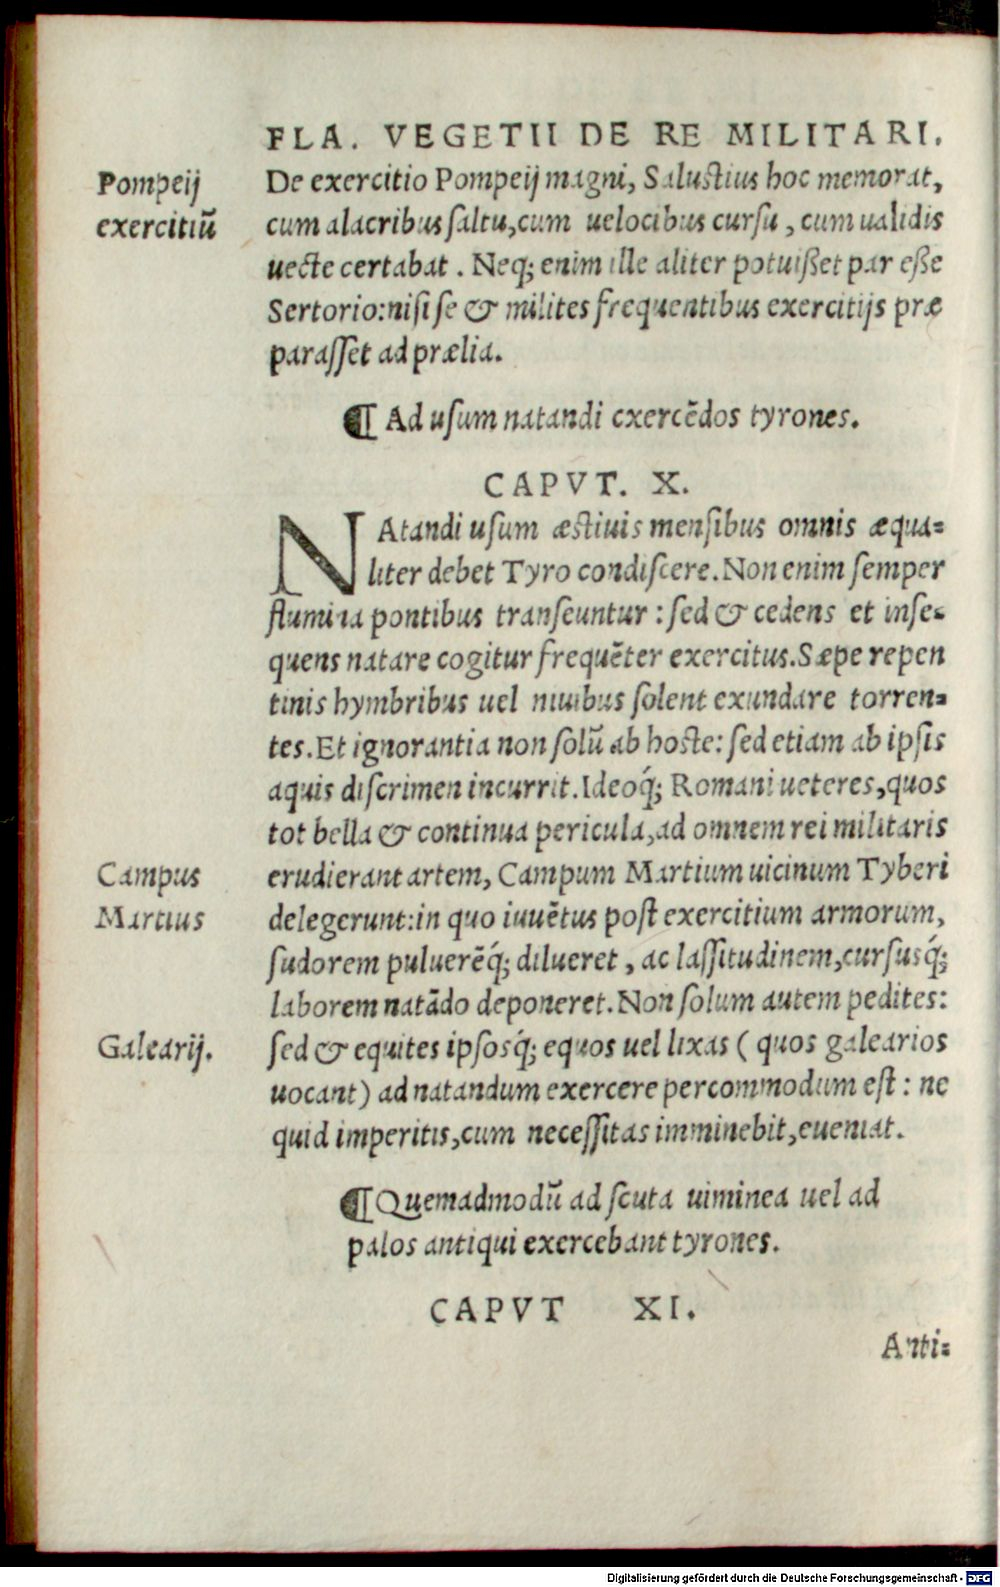 FLA. VEGETII DE RE MILITARI.
Pompeij
exercitiũ
De exercitio Pompeij magni, Salustius hoc memorat,
cum alacribus saltu, cum uelocibus cursu, cum ualidis
uecte certabat. Neq; enim ille aliter potuisset par esse
Sertorio: nisi se & milites frequentibus exercitijs præ
parasset ad prælia.
¶ Ad usum natandi exercẽdos tyrones.
CAPVT. X.
NAtandi usum æstiuis mensibus omnis æqua=
liter debet Tyro condiscere. Non enim semper
flumina pontibus transeuntur: sed & cedens et inse=
quens natare cogitur frequẽter exercitus. Sæpe repen
tinis hymbribus uel niuibus solent exundare torren=
tes. Et ignorantia non solũ ab hoste: sed etiam ab ipsis
aquis discrimen incurrit. Ideoq́; Romani ueteres, quos
tot bella & continua pericula, ad omnem rei militaris
Campus
Martius
erudierant artem, Campum Martium uicinum Tyberi
delegerunt: in quo iuuẽtus post exercitium armorum,
sudorem puluerẽq́; dilueret, ac lassitudinem, cursusq́;
laborem natãdo deponeret. Non solum autem pedites:
Galearij.
sed & equites ipsosq́; equos uel lixas (quos galearios
uocant) ad natandum exercere percommodum est: ne
quid imperitis, cum necessitas imminebit, eueniat.
¶ Quemadmodũ ad scuta uiminea uel ad
palos antiqui exercebant tyrones.
CAPVT XI.
Anti=
Digitalisierung gefördert durch die Deutsche Forschungsgemeinschaft - DFG